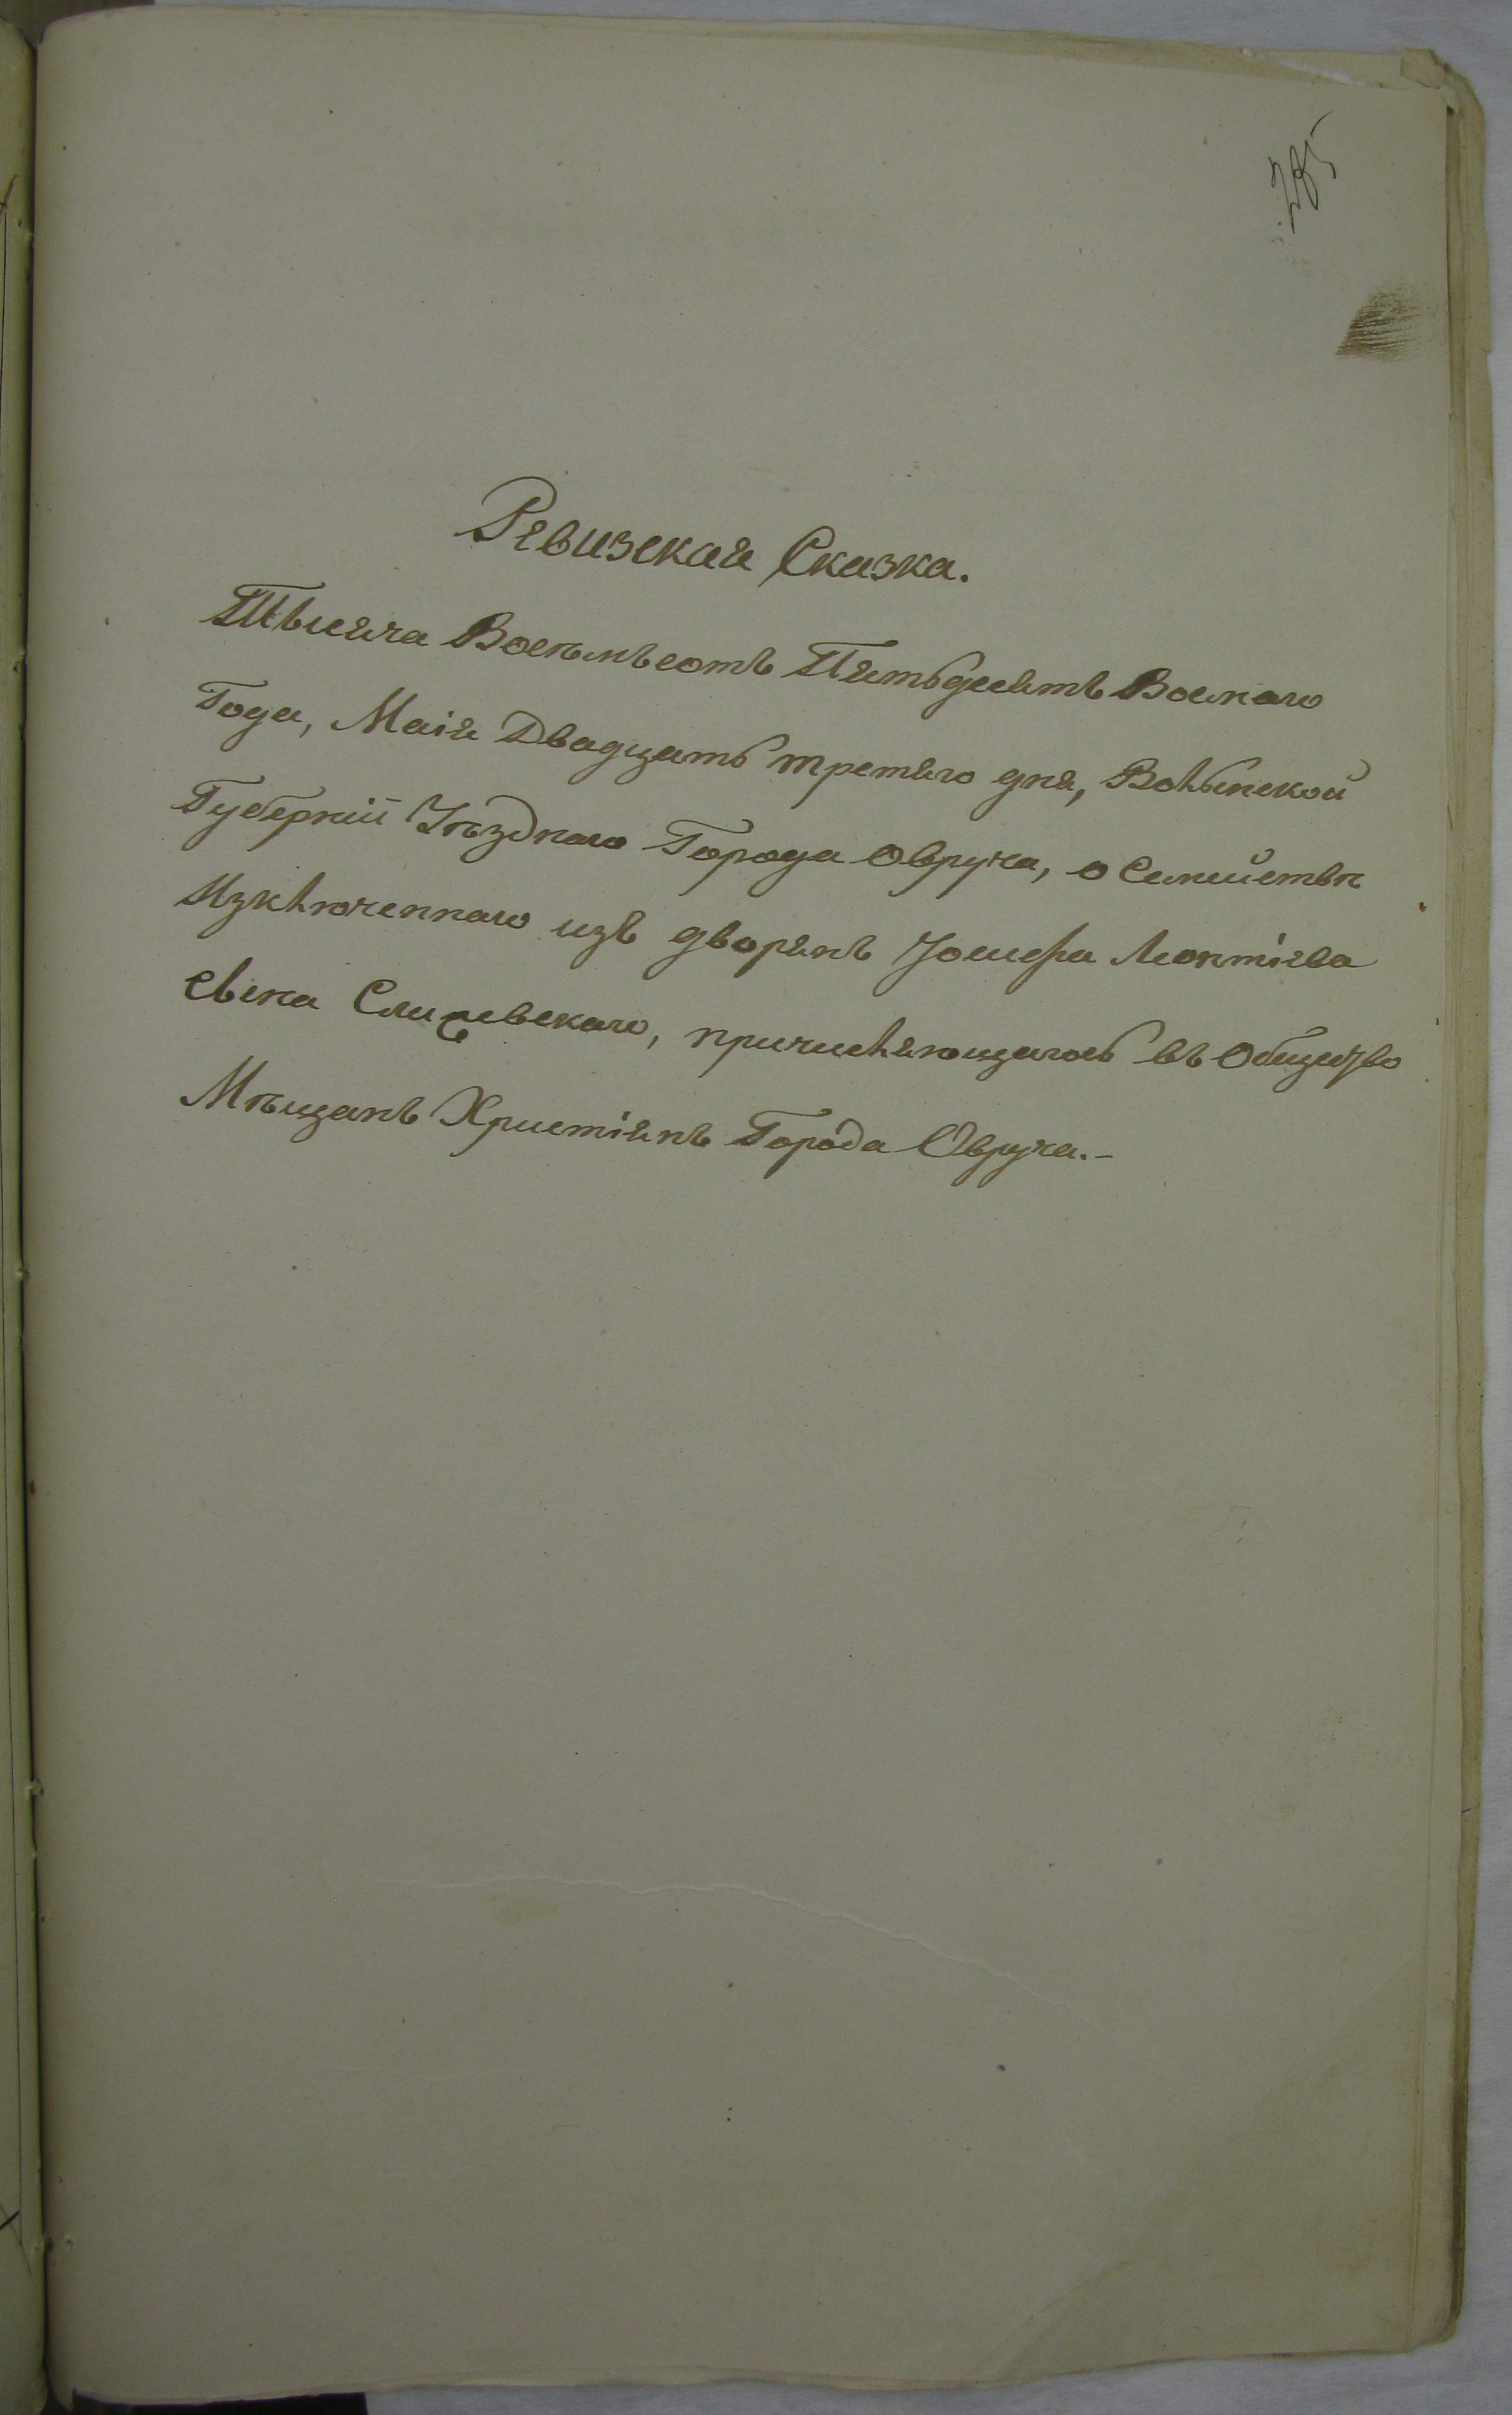 285
Ревизская Сказка.
Тысяча Восемьсотъ Пятьдесятъ Восмаго
Года, Маія Двадцать третяго дня, Волынской
Губерніи Уѣзднаго Города Овруча, о Семействѣ
Изключеннаго изъ дворянъ Іосифа Леонтіева
сына Слицевскаго, причисляющагось въ Общество
Мѣщанъ Христіянъ Города Овруча.-